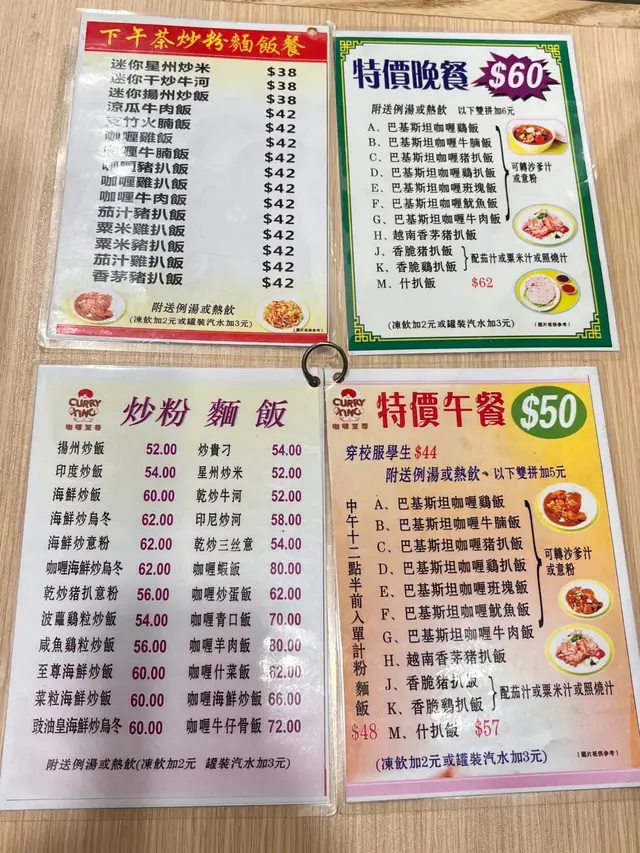 下午茶炒粉麵飯餐
迷你星州炒米 $38
迷你干炒牛河 $38
迷你揚州炒飯 $38
涼瓜牛肉飯 $42
支竹火腩飯 $42
咖喱雞飯 $42
咖喱牛腩飯 $42
咖喱豬扒飯 $42
咖喱雞扒飯 $42
咖喱牛肉飯 $42
茄汁豬扒飯 $42
粟米雞扒飯 $42
粟米豬扒飯 $42
茄汁雞扒飯 $42
香茅豬扒飯 $42
附送例湯或熱飲
(凍飲加2元或罐裝汽水加3元)
(圖片祇供參考)
特價晚餐 $60
附送例湯或熱飲 以下雙拼加6元
A、巴基斯坦咖喱鷄飯
B、巴基斯坦咖喱牛腩飯
C、巴基斯坦咖喱猪扒飯
D、巴基斯坦咖喱鷄扒飯
E、巴基斯坦咖喱班塊飯
F、巴基斯坦咖喱魷魚飯
G、巴基斯坦咖喱牛肉飯
可轉沙爹汁
或意粉
H、越南香茅猪扒飯
J、香脆猪扒飯
K、香脆鷄扒飯
配茄汁或粟米汁或照燒汁
M、什扒飯 $62
(凍飲加2元或罐裝汽水加3元)
(圖片祇供參考)
CURRY KING
咖喱至尊
炒粉麵飯
揚州炒飯 52.00 炒貴刁 54.00
印度炒飯 54.00 星州炒米 52.00
海鮮炒飯 60.00 乾炒牛河 52.00
海鮮炒烏冬 62.00 印尼炒河 58.00
海鮮炒意粉 62.00 乾炒三丝意 54.00
咖喱海鮮炒烏冬 62.00 咖喱蝦飯 80.00
乾炒猪扒意粉 56.00 咖喱炒蛋飯 62.00
波蘿鷄粒炒飯 54.00 咖喱青口飯 70.00
咸魚鷄粒炒飯 56.00 咖喱羊肉飯 80.00
至尊海鮮炒飯 60.00 咖喱什菜飯 62.00
菜粒海鮮炒飯 60.00 咖喱海鮮炒飯 66.00
豉油皇海鮮炒烏冬 60.00 咖喱牛仔骨飯 72.00
附送例湯或熱飲(凍飲加2元 罐裝汽水加3元)
CURRY KING
咖喱至尊
特價午餐 $50
穿校服學生 $44
附送例湯或熱飲、以下雙拼加5元
中午十二點半前入單計粉麵飯 $48
A、巴基斯坦咖喱鷄飯
B、巴基斯坦咖喱牛腩飯
C、巴基斯坦咖喱猪扒飯
D、巴基斯坦咖喱鷄扒飯
E、巴基斯坦咖喱班塊飯
F、巴基斯坦咖喱魷魚飯
G、巴基斯坦咖喱牛肉飯
可轉沙爹汁
或意粉
H、越南香茅猪扒飯
J、香脆猪扒飯
K、香脆鷄扒飯
配茄汁或粟米汁或照燒汁
M、什扒飯 $57
(凍飲加2元或罐裝汽水加3元)
(圖片祇供參考)